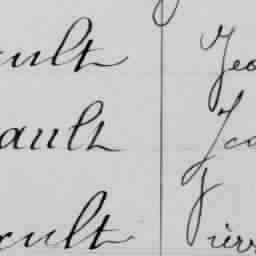 ault Jea
ault Jea
ault Pierr